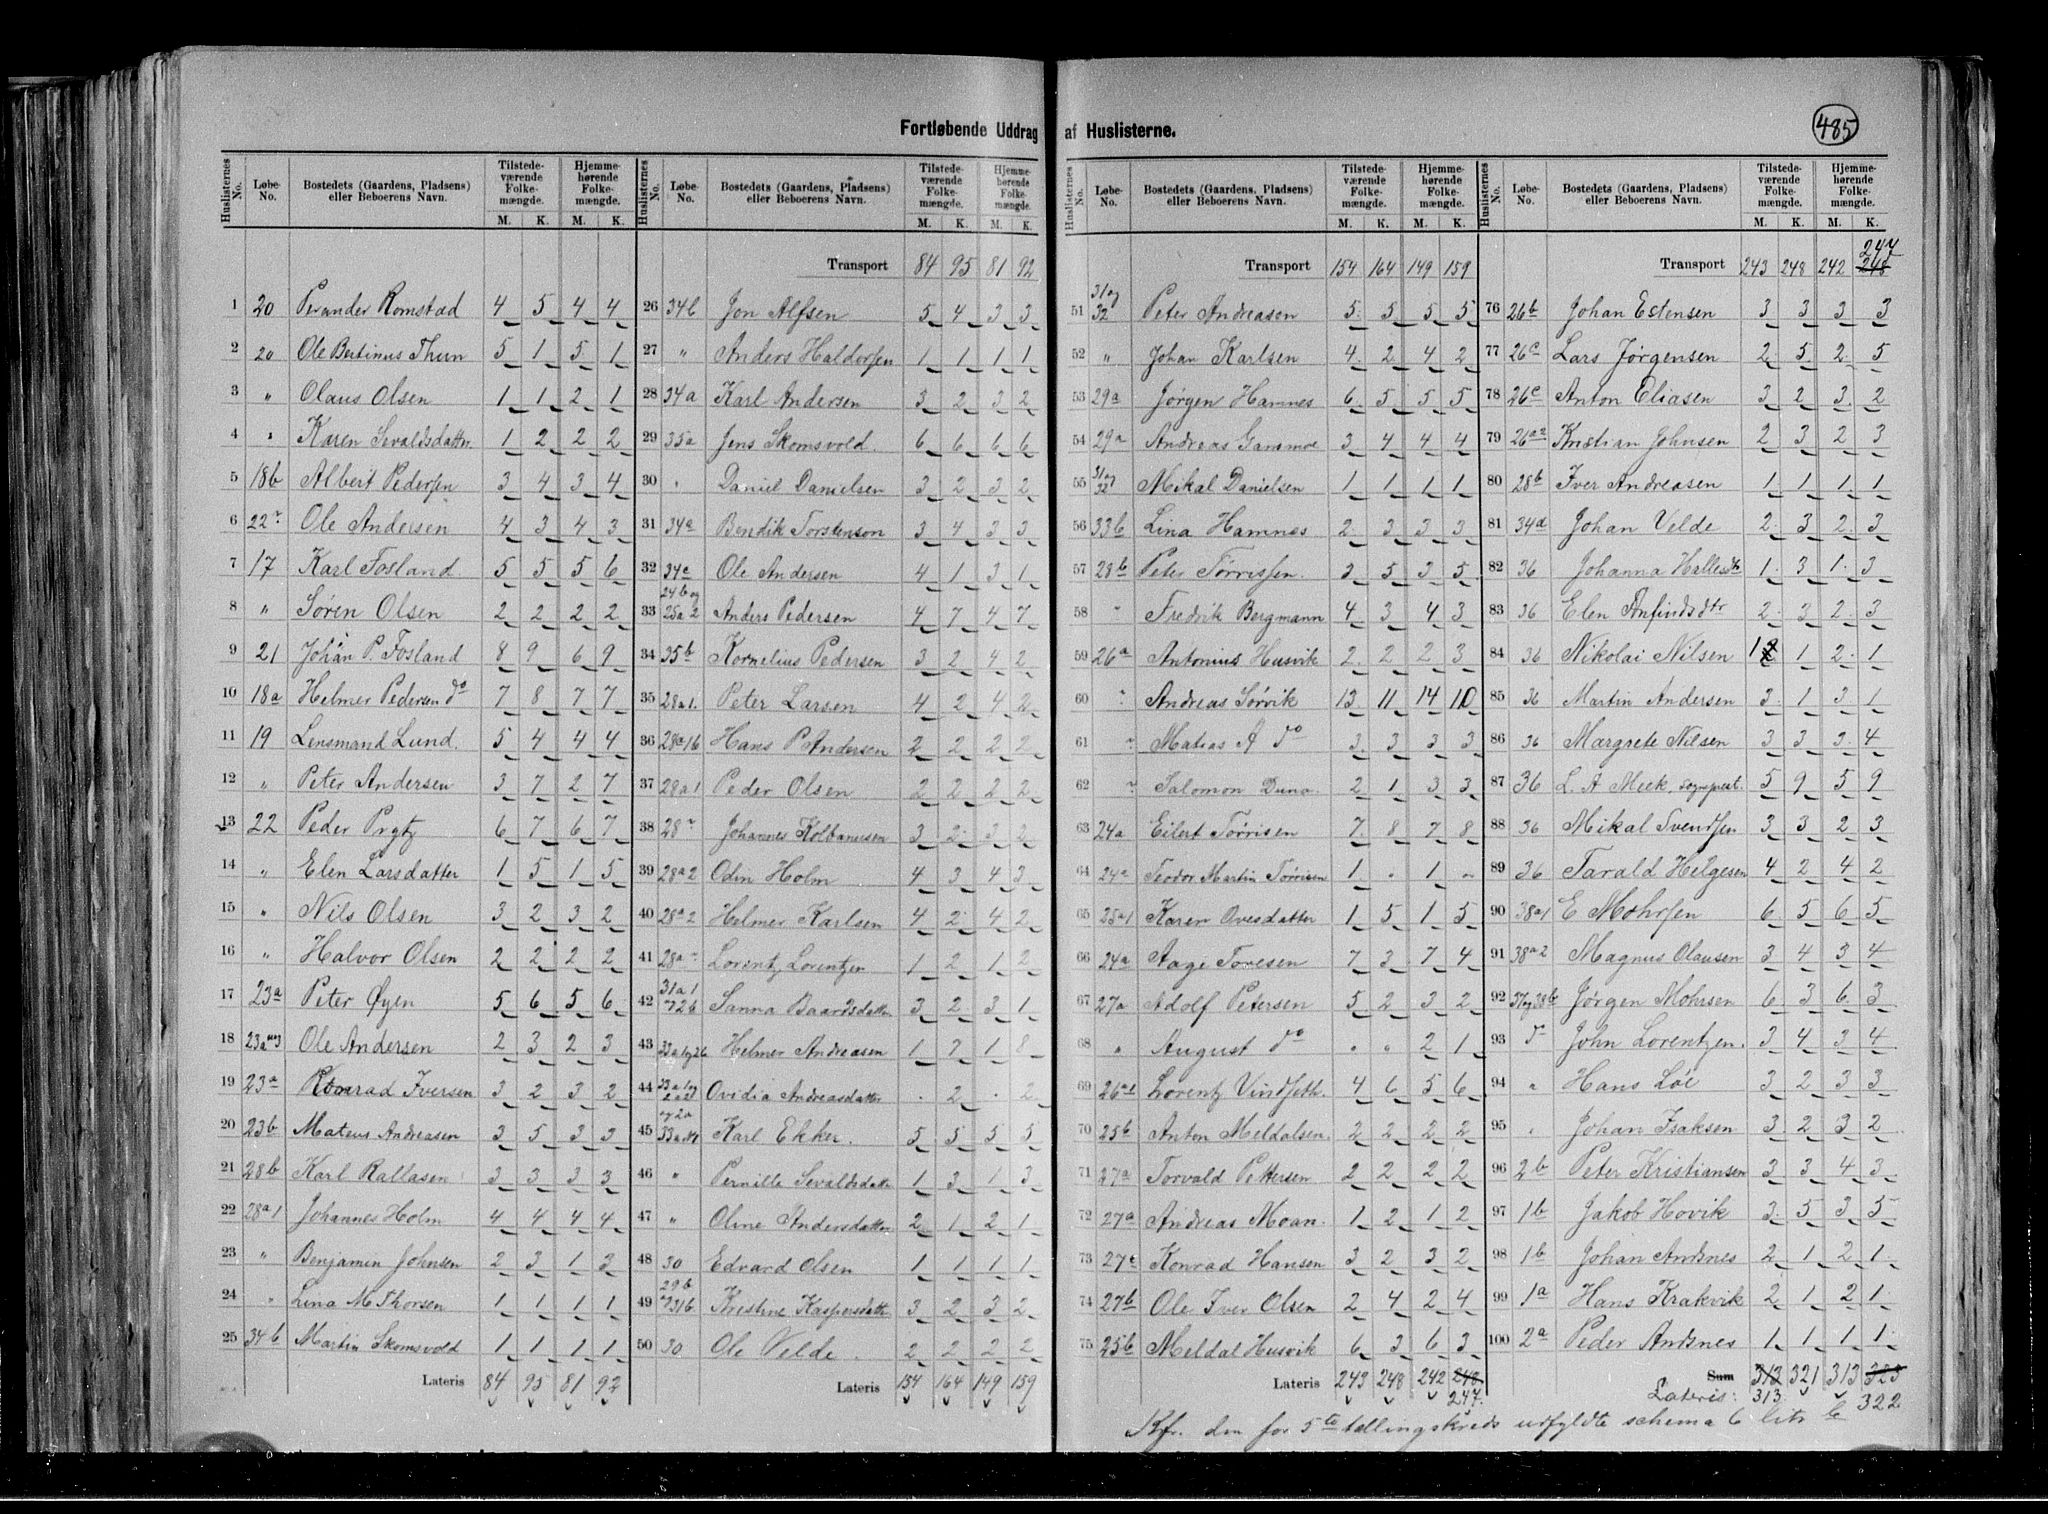 Fortløbende Uddrag af Huslisterne.
485
Huslisternes No. Løbe-No. Bostedets (Gaardens, Pladsens) eller Beboerens Navn. Tilstedeværende Folkemængde. M. K. Hjemmehørende Folkemængde. M. K.
1 20 Perander Romstad 4 5 4 4
2 20 Ole Bertinus Thun 5 1 5 1
3 " Olaus Olsen 1 1 2 1
4 " Karen Sevaldsdatter 1 2 2 2
5 18b Albert Pedersen 3 4 3 4
6 22 Ole Andersen 4 3 4 3
7 17 Karl Fosland 5 5 5 6
8 " Søren Olsen 2 2 2 2
9 21 Johan P. Fosland 8 9 6 9
10 18a Helmer Pedersen do 7 8 7 7
11 19 Lensmand Lund. 5 4 4 4
12 " Peter Andersen 3 7 2 7
13 22 Peder Prytz 6 7 6 7
14 " Elen Larsdatter 1 5 1 5
15 " Nils Olsen 3 2 3 2
16 " Halvor Olsen 2 2 2 2
17 23a Peter Øyen 5 6 5 6
18 23a Ole Andersen 2 3 2 3
19 23a Konrad Iversen 3 2 3 2
20 23b Mateus Andreasen 3 5 3 3
21 28b Karl Rallasen 3 3 3 3
22 28a1 Johannes Holm 4 4 4 4
23 " Benjamin Johnsen 2 3 1 3
24 " Lina M Thorsen 1 1 1 1
25 34b Martin Skomsvold 1 1 1 1
Lateris 84 95 81 92
Huslisternes No. Løbe-No. Bostedets (Gaardens, Pladsens) eller Beboerens Navn. Tilstedeværende Folkemængde. M. K. Hjemmehørende Folkemængde. M. K.
Transport 84 95 81 92
26 34b Jon Alfsen 5 4 3 3
27 " Anders Haldorsen 1 1 1 1
28 34a Karl Andersen 3 2 3 2
29 35a Jens Skomsvold. 6 6 6 6
30 " Daniel Danielsen 3 2 3 2
31 34a Bendik Torstenson 3 4 3 3
32 34c Ole Andersen 4 1 3 1
33 24b og 25a2 Anders Pedersen 4 7 4 7
34 35b Kornelius Pedersen 3 2 4 2
35 28a1. Peter Larsen 4 2 4 2
36 28a1b Hans P Andersen 2 2 2 2
37 28a1 Peder Olsen 2 2 2 2
38 28 Johannes Kolbanusen 3 2 3 2
39 28a2 Odin Holm 4 3 4 3
40 28a2 Helmer Karlsen 4 2 4 2
41 28a Lorentz Lorentzen 1 2 1 2
42 31a1 Sanna Baardsdatter 3 2 3 1
43 Helmer Andreasen 1 7 1 8
44 Ovidia Andreasdatter . 2 . 2
45 Karl Ekker. 5 5 5 5
46 " Pernille Sevaldsdatter 1 3 1 3
47 " Oline Andersdatter 2 1 2 1
48 30 Edvard Olsen 1 1 1 1
49 29b 31b Kristine Kaspersdatter 3 2 3 2
50 30 Ole Velde. 2 2 2 2
Lateris 154 164 149 159
Huslisternes No. Løbe-No. Bostedets (Gaardens, Pladsens) eller Beboerens Navn. Tilstedeværende Folkemængde. M. K. Hjemmehørende Folkemængde. M. K.
Transport 154 164 149 159
51 31 og 32 Peter Andreasen 5 5 5 5
52 " Johan Karlsen 4 2 4 2
53 29a Jørgen Hamnes 6 5 5 5
54 29a Andreas Gammoe 3 4 4 4
55 31 og 32 Mikal Danielsen 1 1 1 1
56 33b Lina Hamnes 2 3 3 3
57 28b Peter Tørrissen. 3 5 3 5
58 " Fredrik Bergmann 4 3 4 3
59 26a Antonius Husvik 2 2 2 3
60 " Andreas Sørvik 13 11 14 10
61 " Matias A do 3 3 3 3
62 " Salomon Duna. 2 1 3 3
63 24a Eilert Tørrisen 7 8 7 8
64 24a Teodor Martin Tørrisen 1 . 1 .
65 25a1 Karen Ovesdatter 1 5 1 5
66 24a Aage Toresen 7 3 7 4
67 27a Adolf Petersen 5 2 3 2
68 " August do " " 2 1
69 26a1 Lorentz Vindseth. 4 6 5 6
70 25b Anton Meldalsen. 2 2 2 2
71 27a Torvald Pettersen 2 2 2 2
72 27a Andreas Moan. 1 2 1 2
73 27c Konrad Hansen 3 2 3 2
74 27b Ole Iver Olsen 2 4 2 4
75 25b Meldal Husvik 6 3 6 3
Lateris 243 248 242 248
247.
Huslisternes No. Løbe-No. Bostedets (Gaardens, Pladsens) eller Beboerens Navn. Tilstedeværende Folkemængde. M. K. Hjemmehørende Folkemængde. M. K.
247
Transport 243 248 242 248
76 26b Johan Estensen 3 3 3 3
77 26c Lars Jørgensen 2 5 2 5
78 26c Anton Eliasen 3 2 3 2
79 26a2 Kristian Johnsen 2 3 2 3
80 28b Iver Andreasen 1 1 1 1
81 34d Johan Velde 2 3 2 3
82 36 Johanna Hallesdtr 1 3 1 3
83 36 Elen Anfindsdtr 2 3 2 3
84 36 Nikolai Nilsen 1 1 2 1
85 36 Martin Andersen 3 1 3 1
86 36 Margrete Nilsen 3 3 3 4
87 36 L. A Meek, sogneprest. 5 9 5 9
88 36 Mikal Svendsen 3 3 2 3
89 36 Tarald Helgesen 4 2 4 2
90 38a1 E Mohrsen 6 5 6 5
91 38a2 Magnus Olausen 3 4 3 4
92 37og38b Jørgen Mohrsen 6 3 6 3
93 do John Lorentzen. 3 4 3 4
94 " Hans Løe 3 2 3 3
95 " Johan Isaksen 3 2 3 2
96 2b Peter Kristiansen 3 3 4 3
97 1b Jakob Hovik 3 5 3 5
98 1b Johan Andsnes 2 1 2 1
99 1a Hans Krakvik 2 1 2 1
100 2a Peder Andsnes 1 1 1 1
Sum 312 321 313 323
Lateris: 313 322
Kfr. den for 5te tællingskreds udfyldte schema 6 litr b